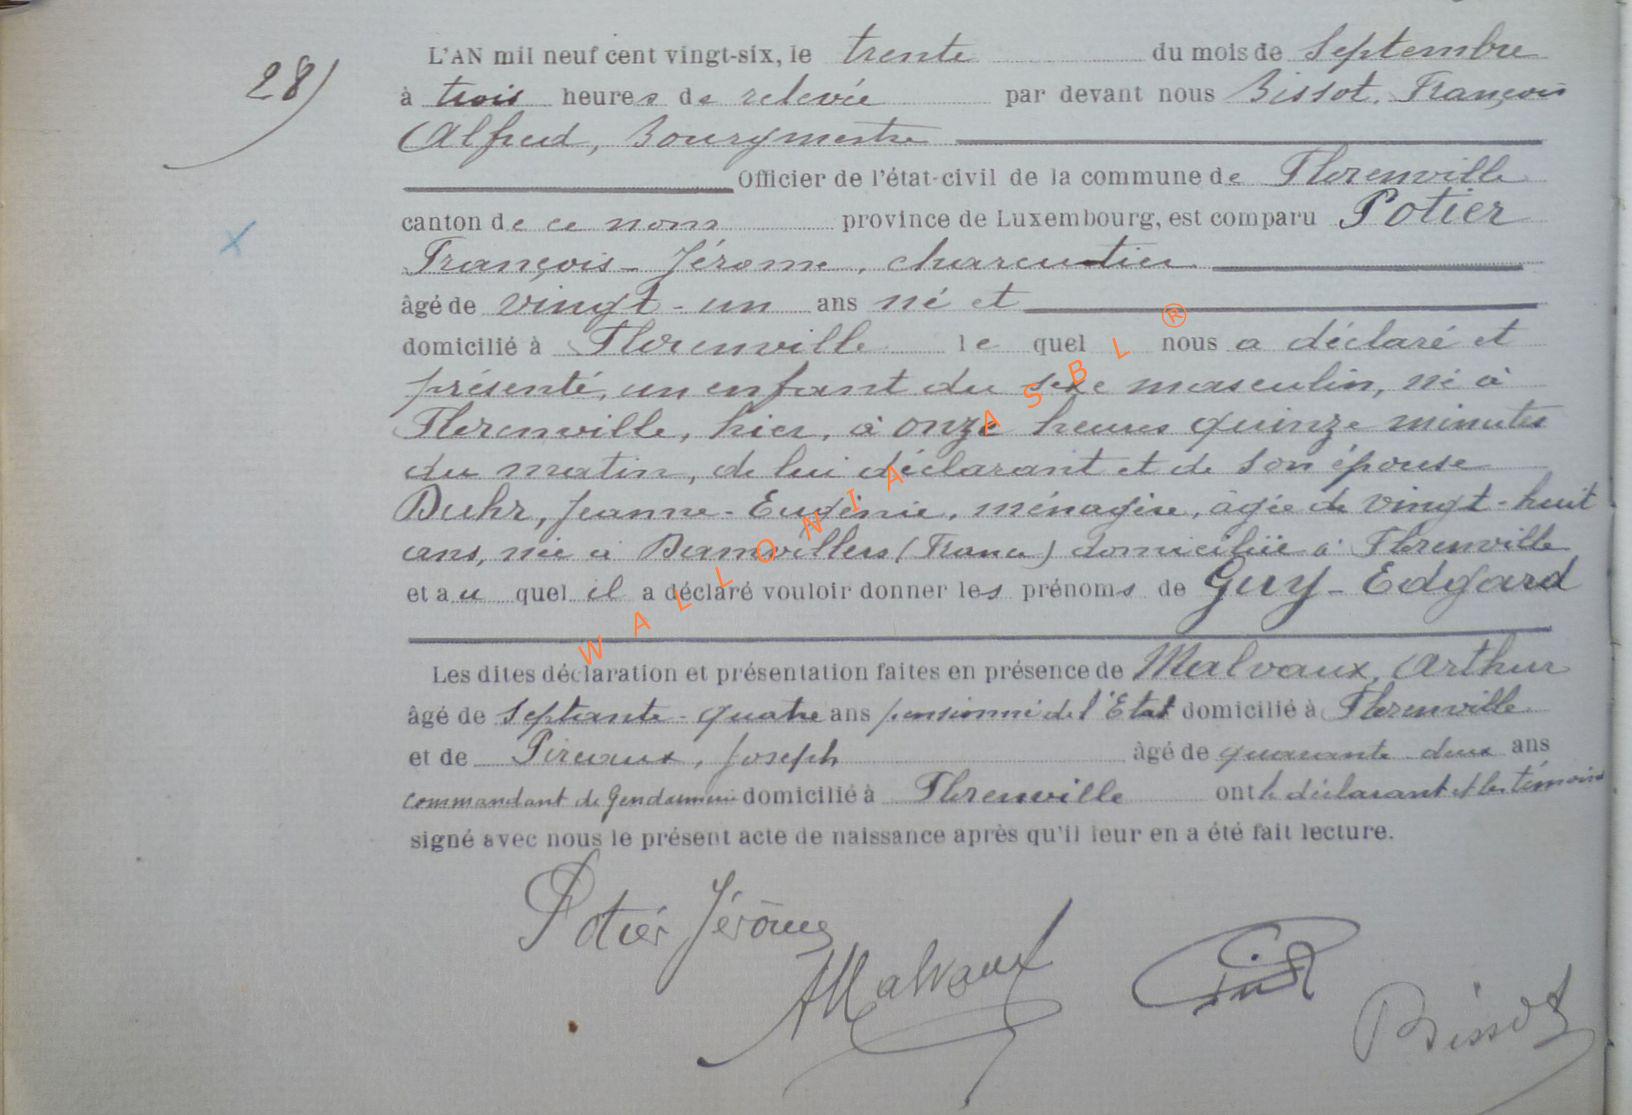 28)
L'AN mil neuf cent vingt-six, le trente du mois de Septembre
à trois heures de relevée par devant nous Bissot, François
Alfred, Bourgmestre
Officier de l'état-civil de la commune de Florenville
canton de ce nom province de Luxembourg, est comparu Potier
François-Jérome, charcutier
âgé de vingt-un ans né et
domicilié à Florenville le quel nous a déclaré et
présenté, un enfant du sexe masculin, né à
Florenville, hier, à onze heures quinze minutes
du matin, de lui déclarant et de son épouse
Duhr, Jeanne-Eugénie, ménagère, âgée de vingt-huit
ans, née à Damvillers (France) domiciliée à Florenville
et au quel il a déclaré vouloir donner les prénoms de Guy-Edgard
Les dites déclaration et présentation faites en présence de Malvaux, Arthur
âgé de septante-quatre ans pensionné de l'Etat domicilié à Florenville
et de Joseph âgé de quarante deux ans
commandant de Gendarmerie domicilié à Florenville ont le déclarant et les témoins
signé avec nous le présent acte de naissance après qu'il leur en a été fait lecture.
Potier Jérôme
AMalvaux
Bissot
WALLONIA ASBL ®